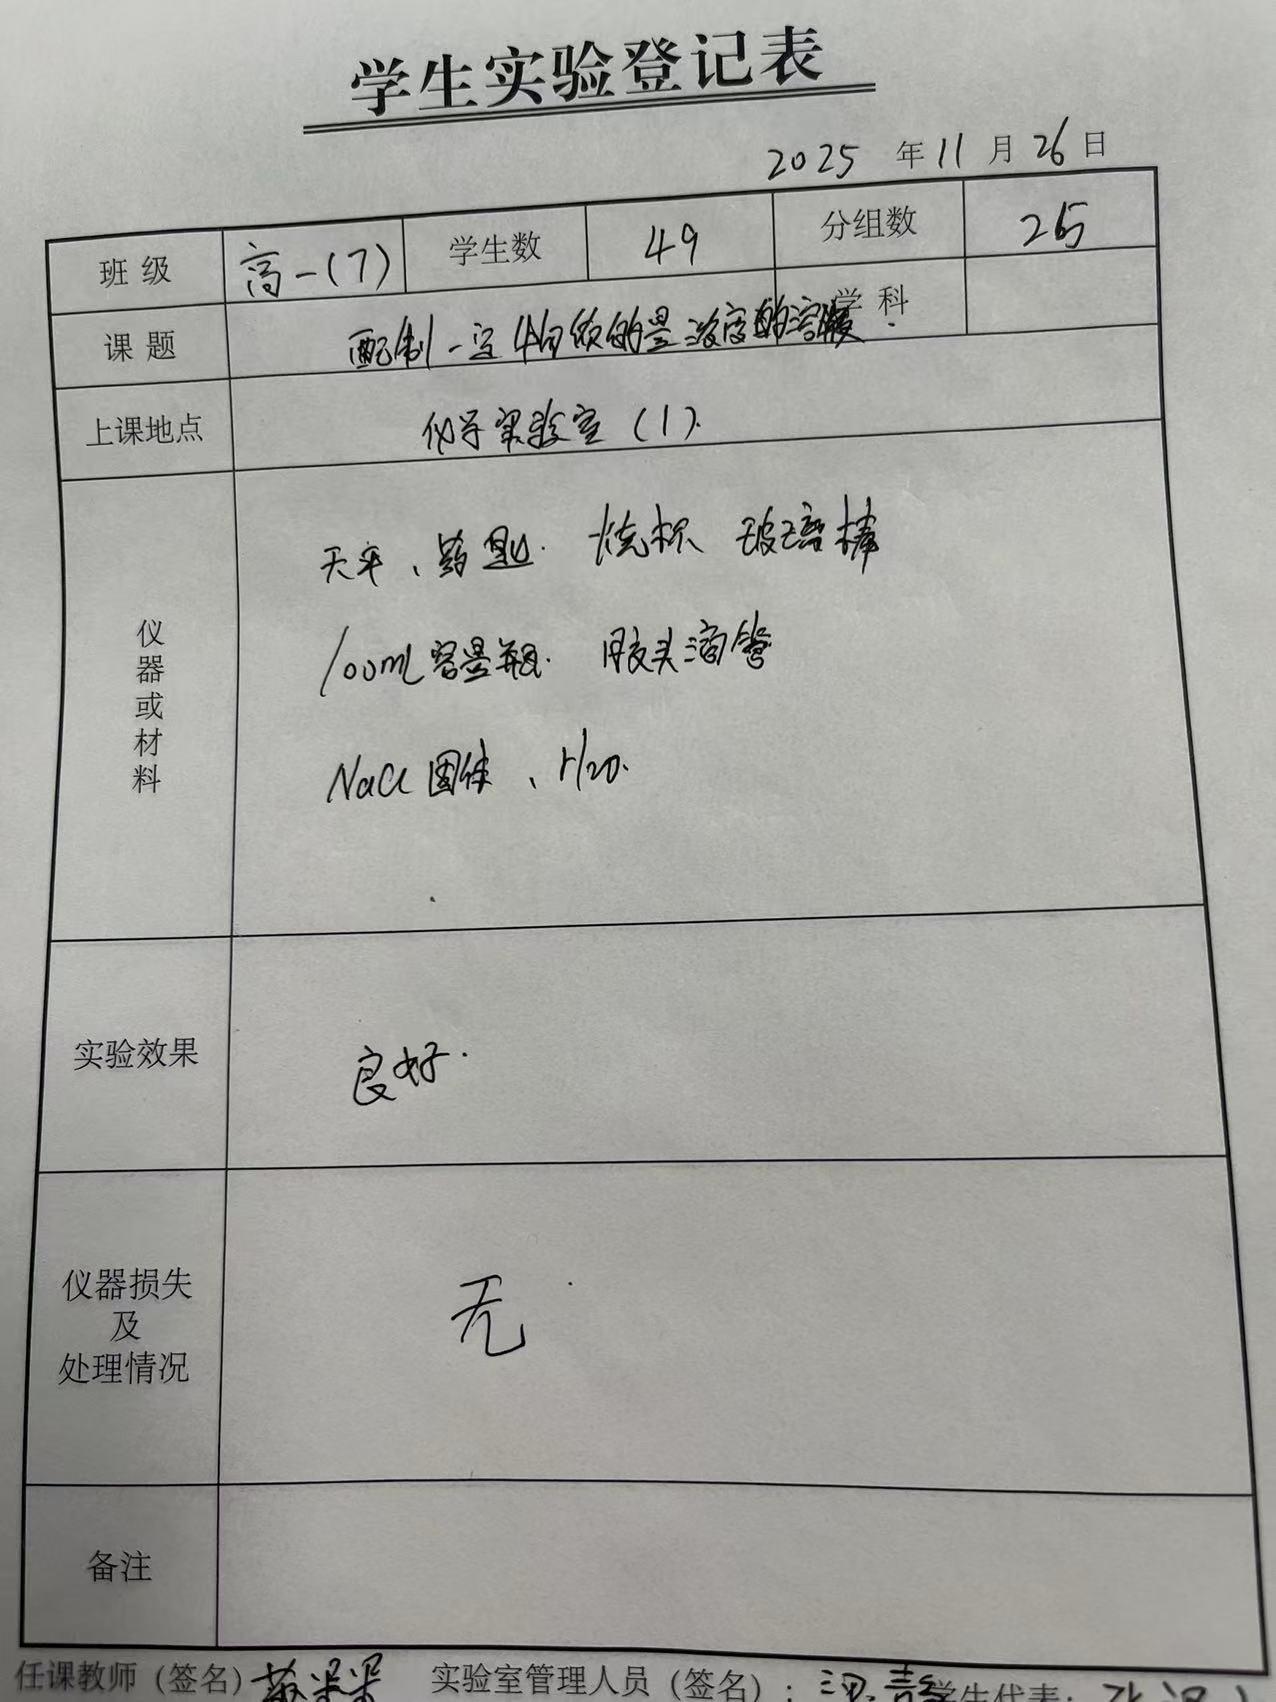 学生实验登记表
2025 年 11 月 26 日
班 级 高一(7) 学生数 49 分组数 25
课 题 配制一定物质的量浓度的溶液. 学 科
上课地点 化学实验室(1).
仪器或材料
天平、药匙. 烧杯 玻璃棒
100mL容量瓶. 胶头滴管
NaCl固体、H2O.
实验效果 良好.
仪器损失
及
处理情况
无
备注
任课教师（签名） 实验室管理人员（签名）： 学生代表：